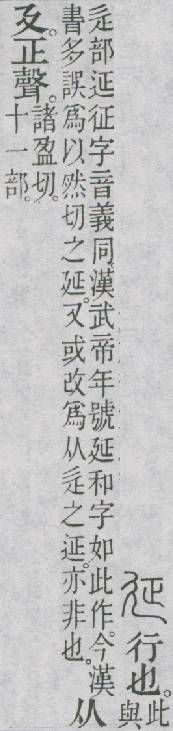 𢌛 行也。此
與
辵部𢌛征字音義同。漢武帝年號𢌛和字如此作。今漢
書多誤爲以然切之延。又或改爲从辵之延。亦非也。
从
廴。正聲。諸盈切。
十一部。